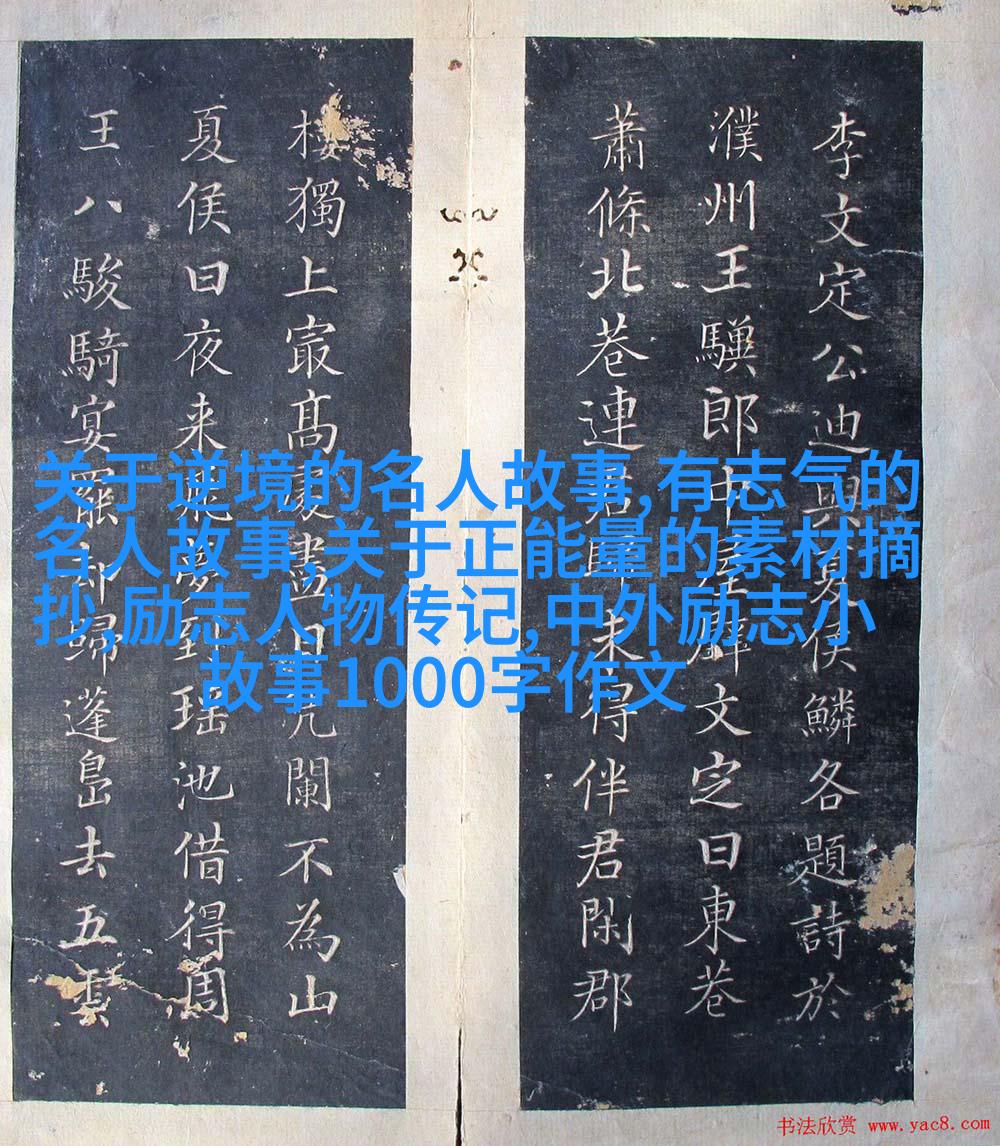 李文定公迪與夏侯鱗各題詩於
濮州王郎中屋壁文定曰東巷
蕭條北巷連歸未得伴君閑郡
樓獨上㝡髙處盡日凭闌不為山
夏侯曰夜来飛夢到瑶池借得周
王八駿騎宴罷却歸蓬島去五雲
关于逆境的名人故事,有志气的
名人故事,关于正能量的素材摘
抄,励志人物传记,中外励志小
故事1000字作文
书法欣赏 www.yac8.com